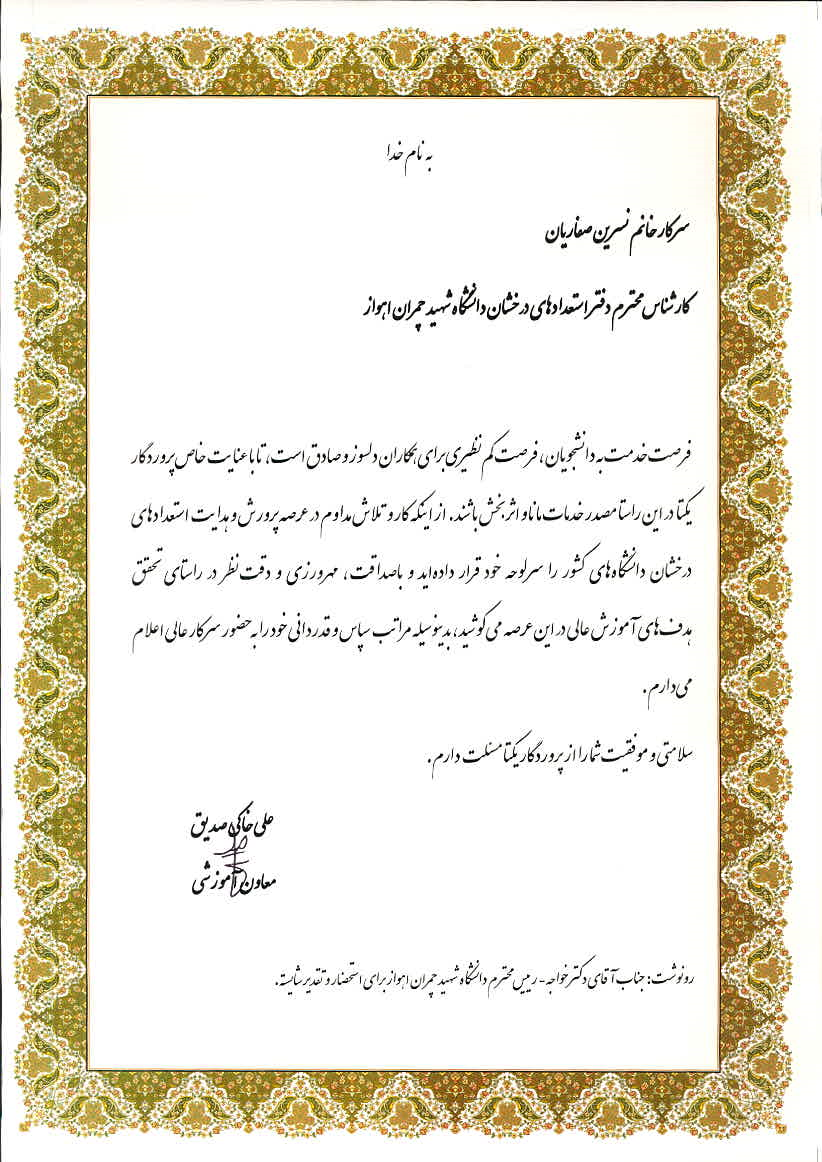 به نام خدا
سرکار خانم نسرین صفاریان
کارشناس محترم دفتر استعدادهای درخشان دانشگاه شهید چمران اهواز
فرصت خدمت به دانشجویان، فرصت کم نظیری برای همکاران دلسوز و صادق است، تا با عنایت خاص پروردگار
یکتا در این راستا مصدر خدمات مانا و اثربخش باشند. از اینکه کار و تلاش مداوم در عرصه پرورش و هدایت استعدادهای
درخشان دانشگاه‌های کشور را سرلوحه خود قرار داده‌اید و باصداقت، مهرورزی و دقت نظر در راستای تحقق
هدف‌های آموزش عالی در این عرصه می‌کوشید، بدینوسیله مراتب سپاس و قدردانی خود را به حضور سرکار عالی اعلام
می‌دارم.
سلامتی و موفقیت شما را از پروردگار یکتا مسئلت دارم.
علی خاکی صدیق
معاون آموزشی
رونوشت: جناب آقای دکتر خواجه - رییس محترم دانشگاه شهید چمران اهواز برای استحضار و تقدیر شایسته.